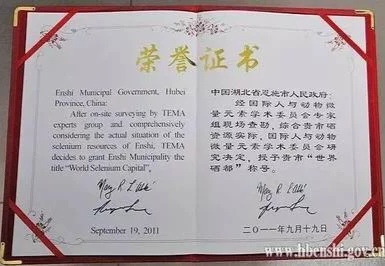 荣誉证书
Enshi Municipal Government, Hubei
Province, China:
After on-site surveying by TEMA
experts group and comprehensively
considering the actual situation of the
selenium resources of Enshi, TEMA
decides to grant Enshi Municipality the
title "World Selenium Capital",
September 19, 2011
中国湖北省恩施市人民政府:
经国际人与动物微
量元素学术委员会专家
组现场查勘,综合贵市硒
资源实际,国际人与动物
微量元素学术委员会研
究决定,授予贵市"世界
硒都"称号。
二〇一一年九月十九日
www.hbenshi.gov.cn